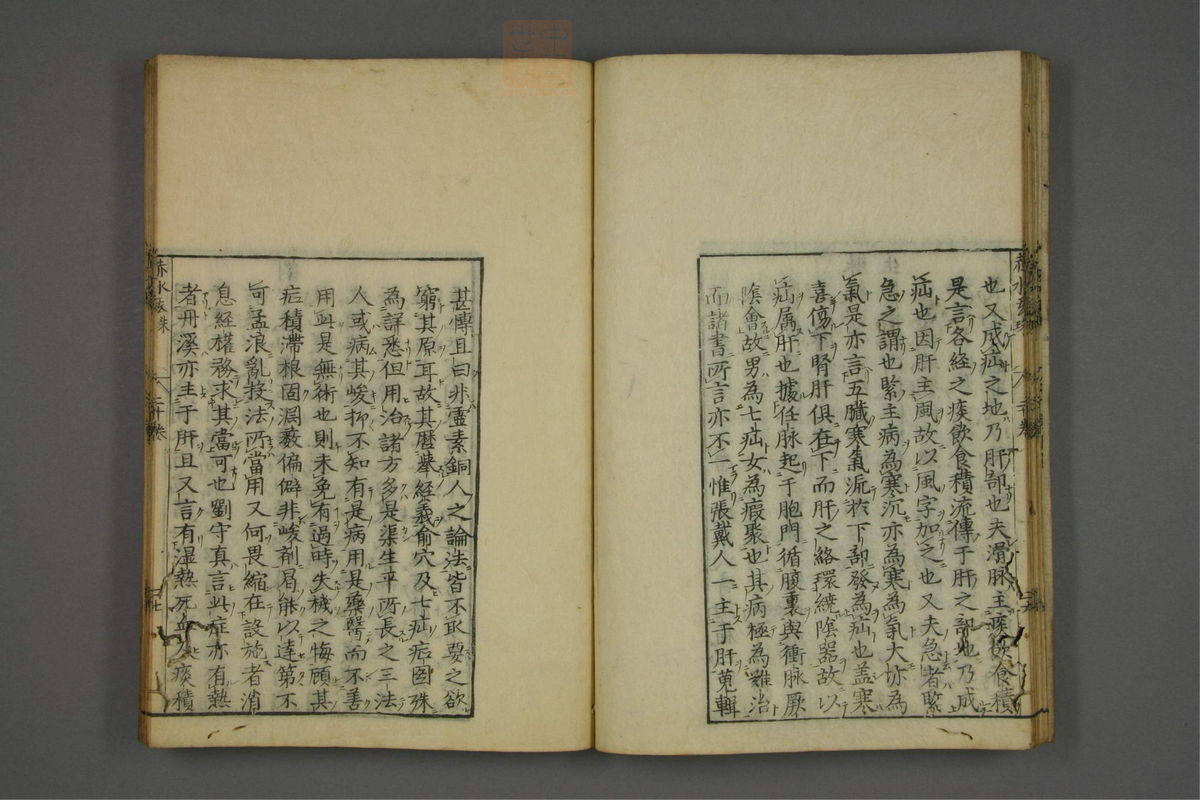 也又成疝之地乃肝部也夫滑脉主痰飲食積
是言各經之痰飲食積流傳于肝之部地乃成
疝也因肝主風故以風字加之也又夫急者緊
急之謂也緊主病為寒沉亦為寒為氣大抵為
氣是亦言五臟寒氣流於下部發為疝也盖寒
喜傷下腎肝俱在下而肝之絡環繞陰器故以
疝属肝也據任脉起于胞門循腹裏與衝脉厥
陰會故男為七疝女為瘕聚也其病極為難治
而諸書所言亦不一惟張戴人一主于肝蒐輯
甚博且曰非靈素銅人之論法皆不取要之欲
窮其原耳故其曆舉經義俞穴及七疝症圖殊
為詳悉但用治諸方多是渠生平所長之三法
人或病其峻抑不知有是病用是藥醫而不善
用此是無術也則未免有過時失機之悔頋其
症積滯根固濕藪偏僻非峻劑曷能以達第不
可孟浪亂投法所當用又何畏縮在設施者消
息經權務求其當可也劉守真言此症亦有熱
者丹溪亦主于肝且又言有湿熱死血及痰積
赤水玄珠
八
二十卷